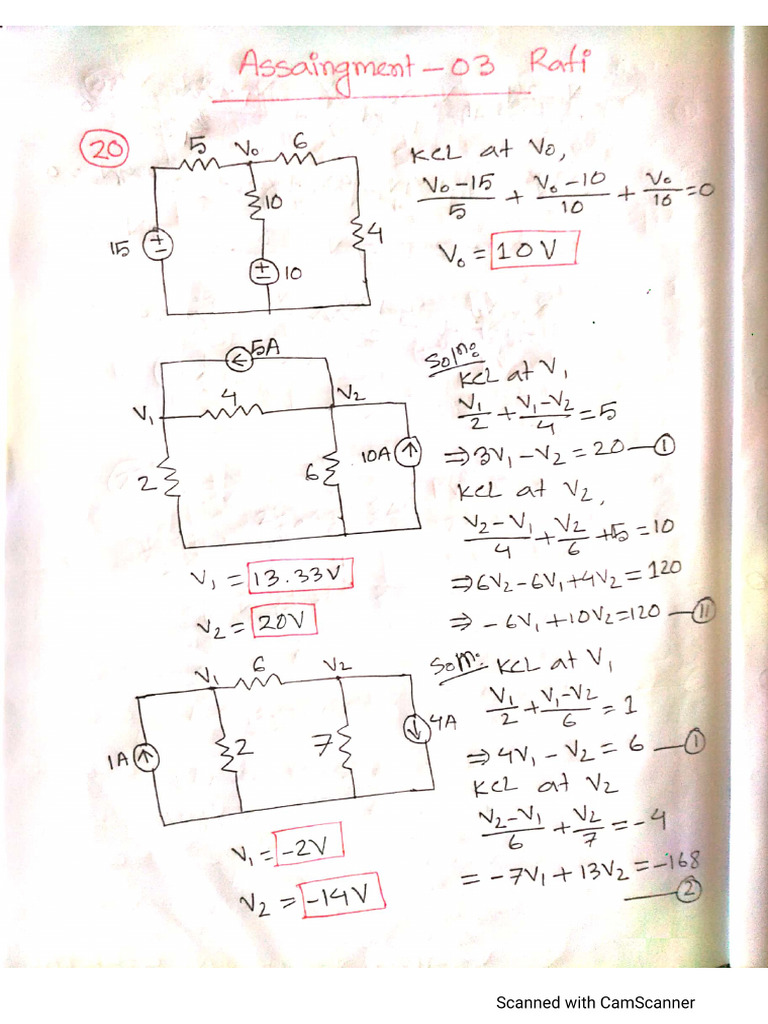 Assaingment-03 Rafi
20
5 V₀ 6
10
15
4
10
KCL at V₀,
(V₀-15)/5 + (V₀-10)/10 + V₀/10 = 0
V₀ = 10V
5A
V₁ 4 V₂
2
6
10A
V₁ = 13.33V
V₂ = 20V
Soln:
KCL at V₁
V₁/2 + (V₁-V₂)/4 = 5
⇒ 3V₁ - V₂ = 20 —①
KCL at V₂,
(V₂-V₁)/4 + V₂/6 + 5 = 10
⇒ 6V₂-6V₁+4V₂ = 120
⇒ -6V₁+10V₂=120 —⑪
V₁ 6 V₂
1A
2
7
4A
V₁ = -2V
V₂ = -14V
Soln: KCL at V₁
V₁/2 + (V₁-V₂)/6 = 1
⇒ 4V₁ - V₂ = 6 —①
KCL at V₂
(V₂-V₁)/6 + V₂/7 = -4
= -7V₁ + 13V₂ = -168
—②
Scanned with CamScanner